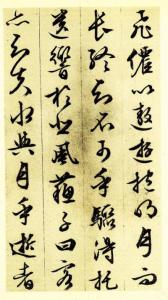 飛僊以遨遊抱明月而
長終知不可乎驟得托
遺響於悲風蘇子曰客
亦知夫水與月乎逝者